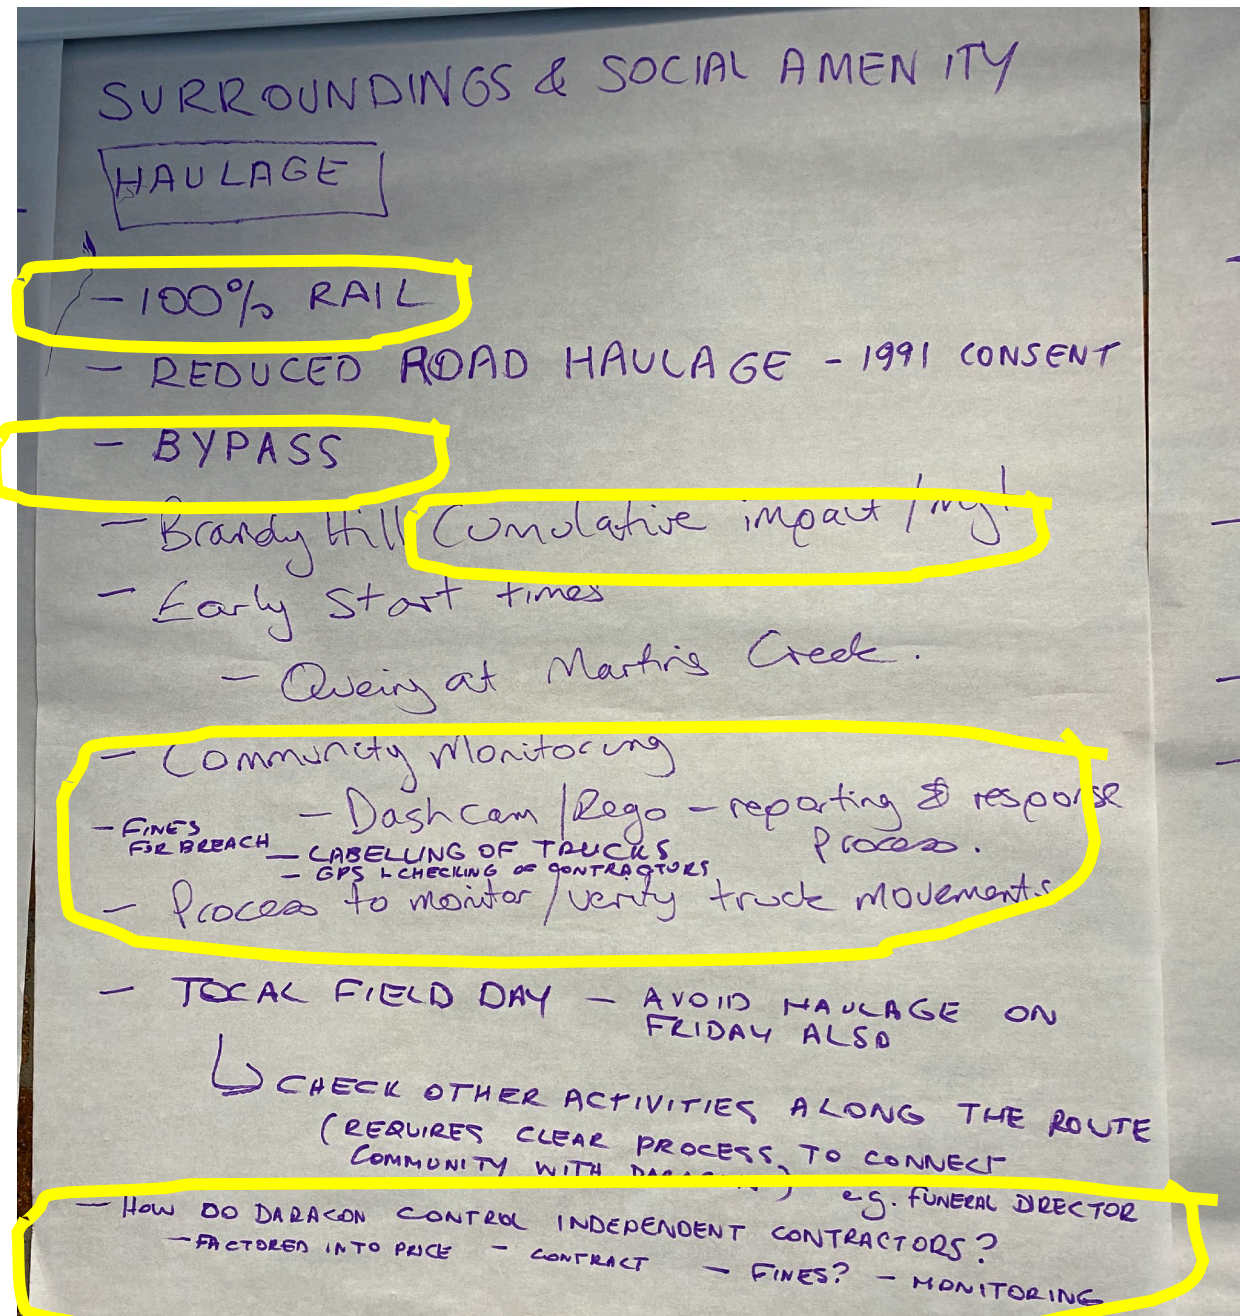 SURROUNDINGS & SOCIAL AMENITY
HAULAGE
- 100% RAIL
- REDUCED ROAD HAULAGE - 1991 CONSENT
- BYPASS
- Brandy Hill Cumulative impact /
- Early start times
- Queing at Martins Creek.
- Community Monitoring
- Dashcam/Rego - reporting & response
process.
- FINES
FOR BREACH
- LABELLING OF TRUCKS
- GPS CHECKING OF CONTRACTORS
- Process to monitor/verify truck movements
- TOCAL FIELD DAY - AVOID HAULAGE ON
FRIDAY ALSO
CHECK OTHER ACTIVITIES ALONG THE ROUTE
(REQUIRES CLEAR PROCESS TO CONNECT
COMMUNITY WITH
e.g. FUNERAL DIRECTOR
- HOW DO DARACON CONTROL INDEPENDENT CONTRACTORS?
- FACTORED INTO PRICE - CONTRACT - FINES? - MONITORING